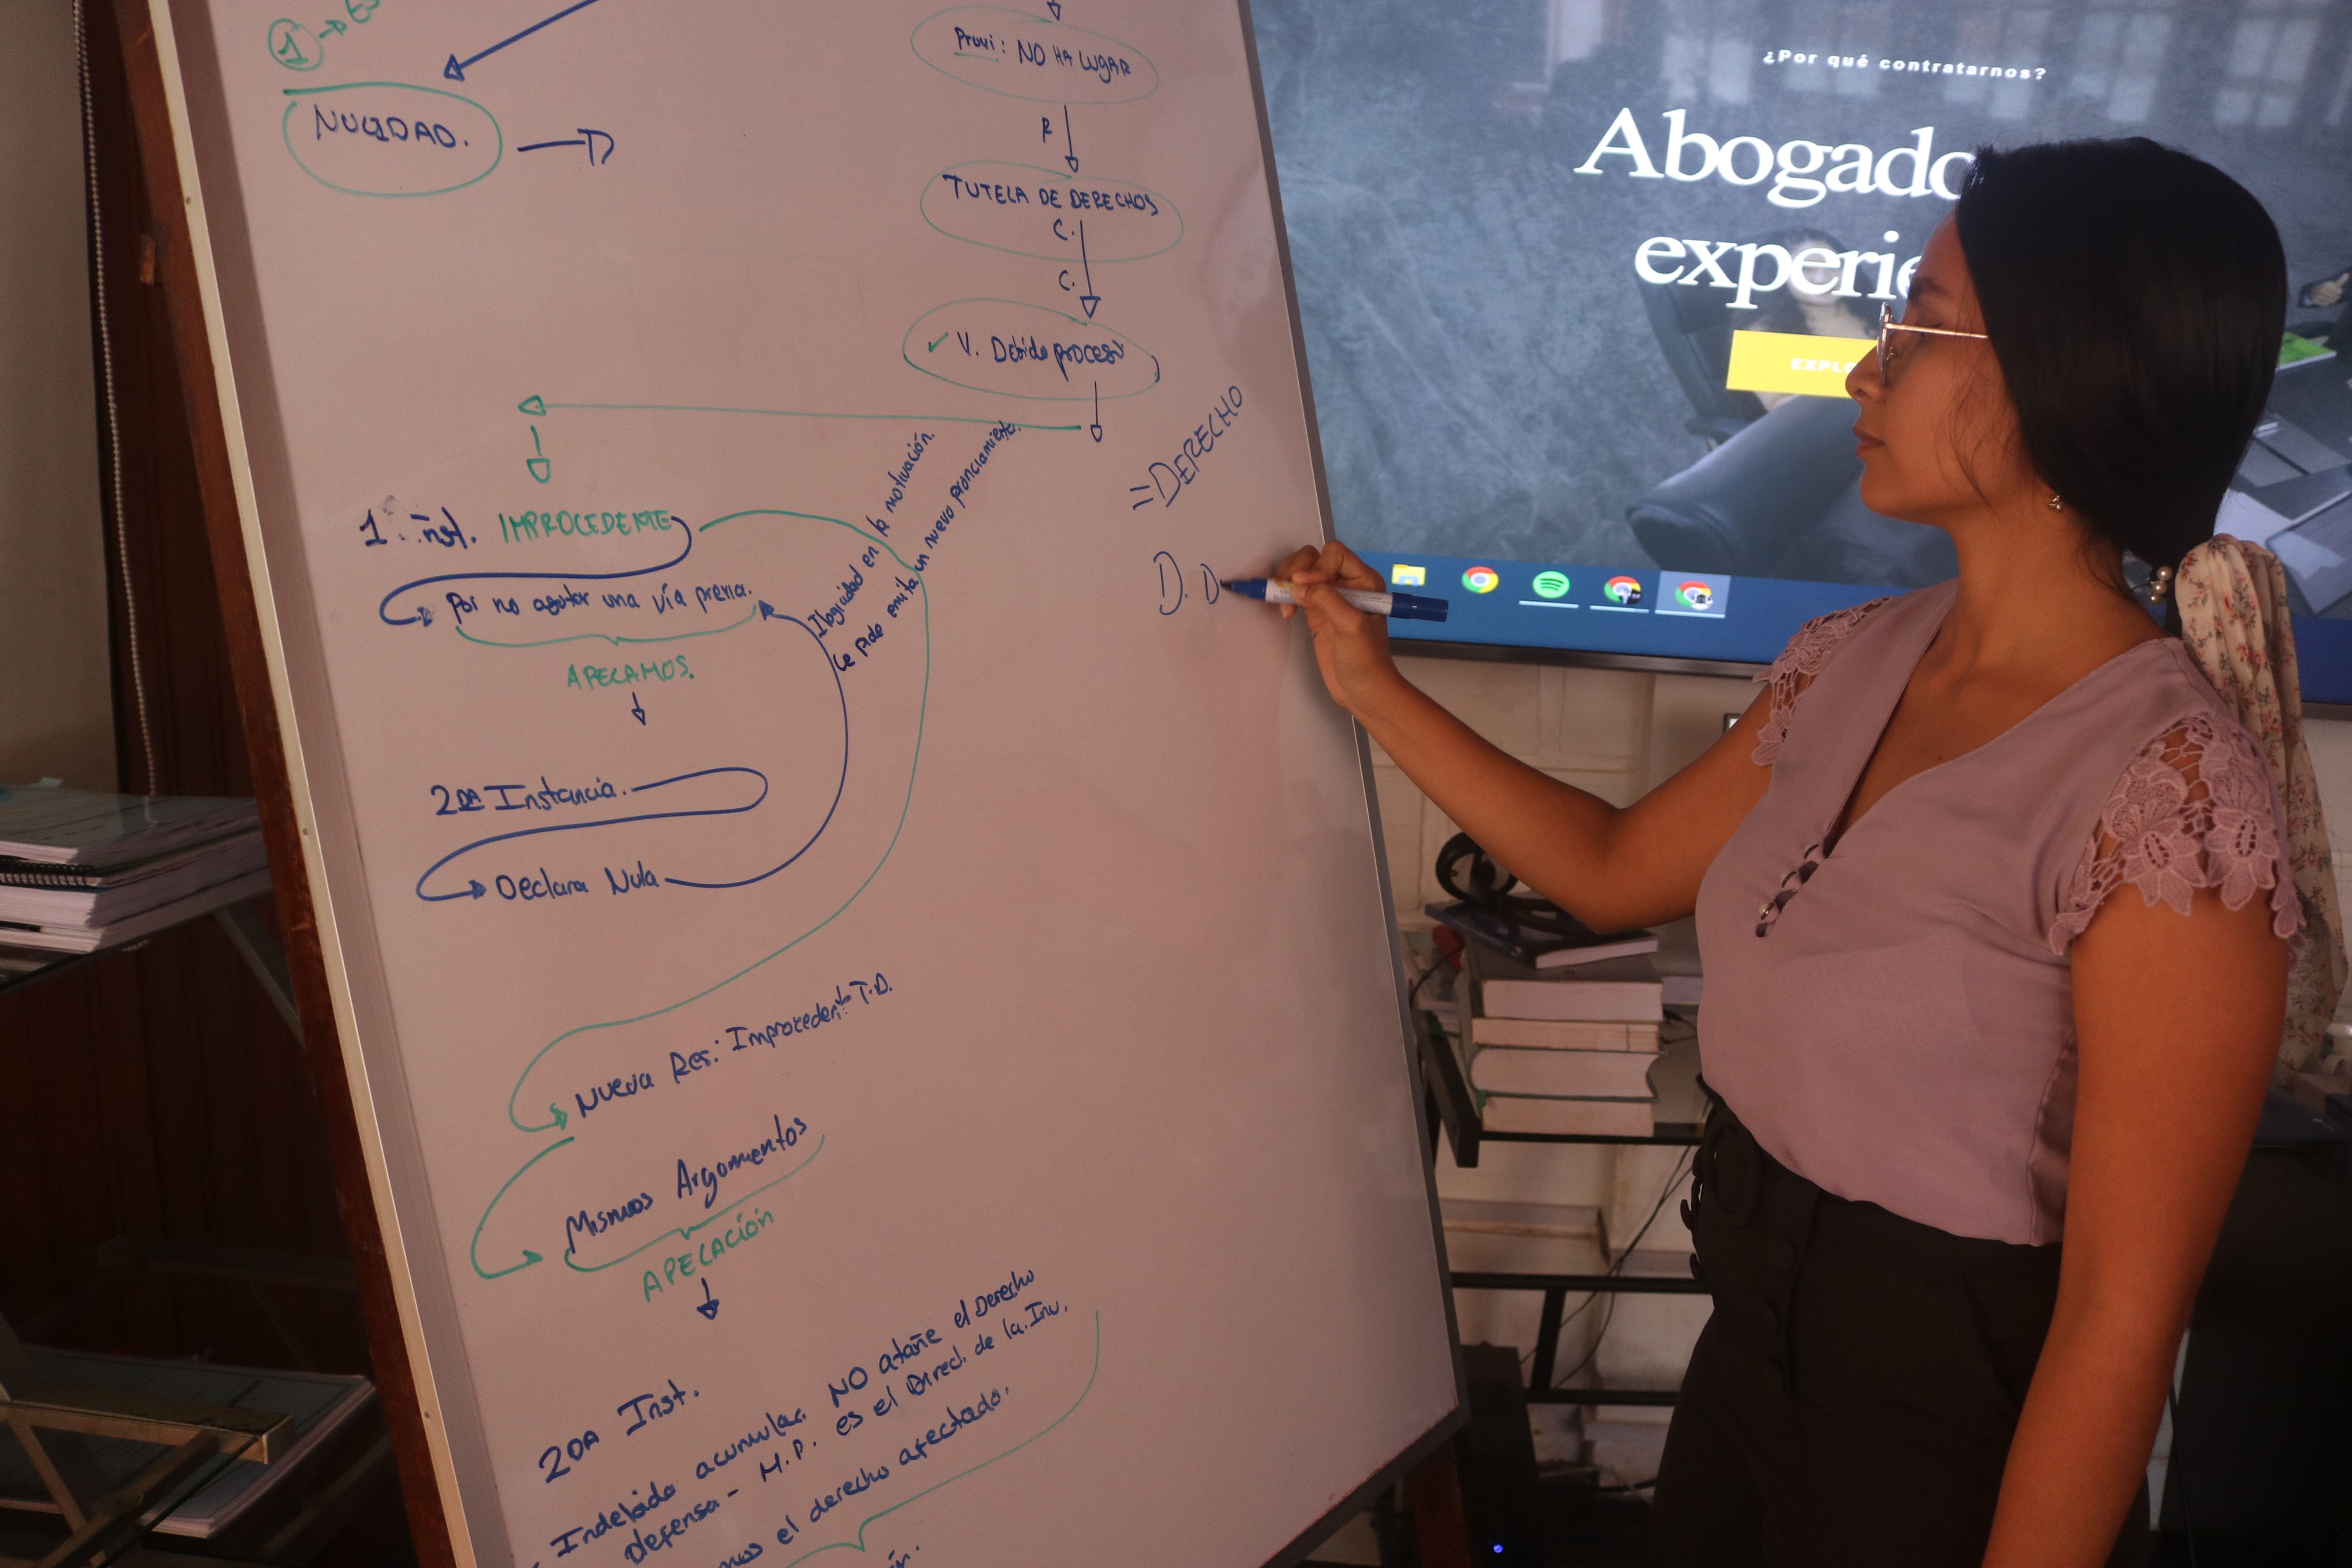 1
NULIDAD.
Provi: NO HA LUGAR
R
TUTELA DE DERECHOS
C.
C.
✓ V. Debido proceso
1 inst. IMPROCEDENTE
Por no agotar una vía previa.
APELAMOS.
2DA Instancia.
Declara Nula
Ilogicidad en la motivación.
Le pide emita un nuevo pronciamiento.
=DERECHO
D. D
Nueva Res: Improcedente T.D.
Mismos Argumentos
APELACIÓN
2DA Inst.
- Indebido acumular. NO atañe el Derecho
defensa - M.P. es el Direct. de la Inv.
el derecho afectado.
¿Por qué contratarnos?
Abogado
experie
EXPL